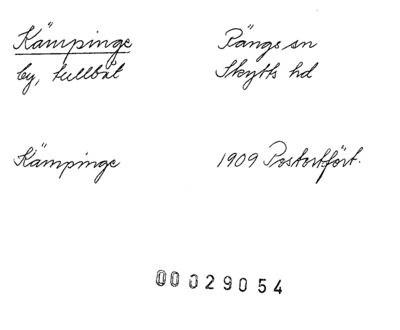 Kämpinge Rängs sn
by, tullbåt Skytts hd
Kämpinge 1909 Postortfört.
00029054